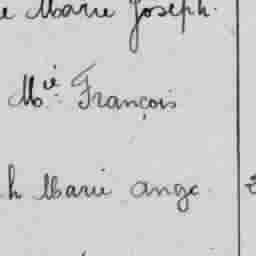 e Marie Joseph.
Mie François
h Marie ange